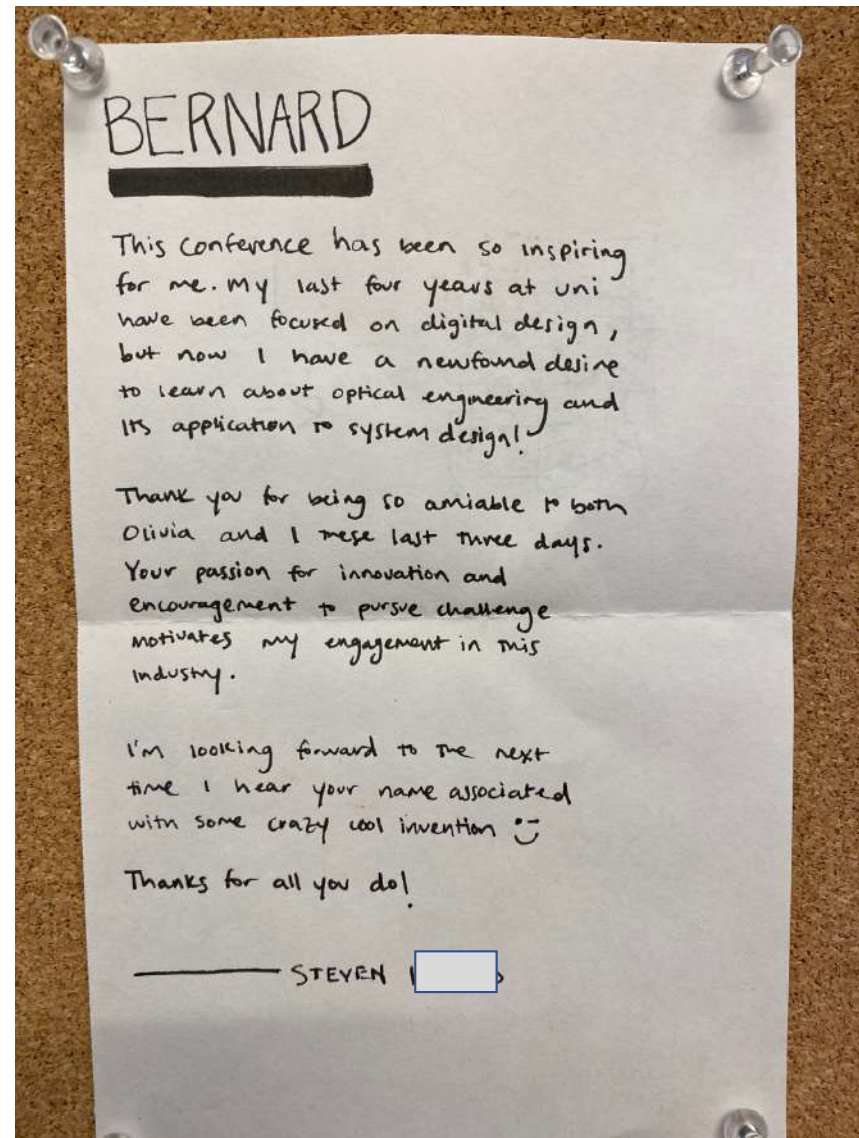 BERNARD
This conference has been so inspiring
for me. My last four years at uni
have been focused on digital design,
but now I have a newfound desire
to learn about optical engineering and
its application to system design!
Thank you for being so amiable to both
Olivia and I these last three days.
Your passion for innovation and
encouragement to pursue challenge
motivates my engagement in this
industry.
I'm looking forward to the next
time I hear your name associated
with some crazy cool invention :)
Thanks for all you do!
STEVEN